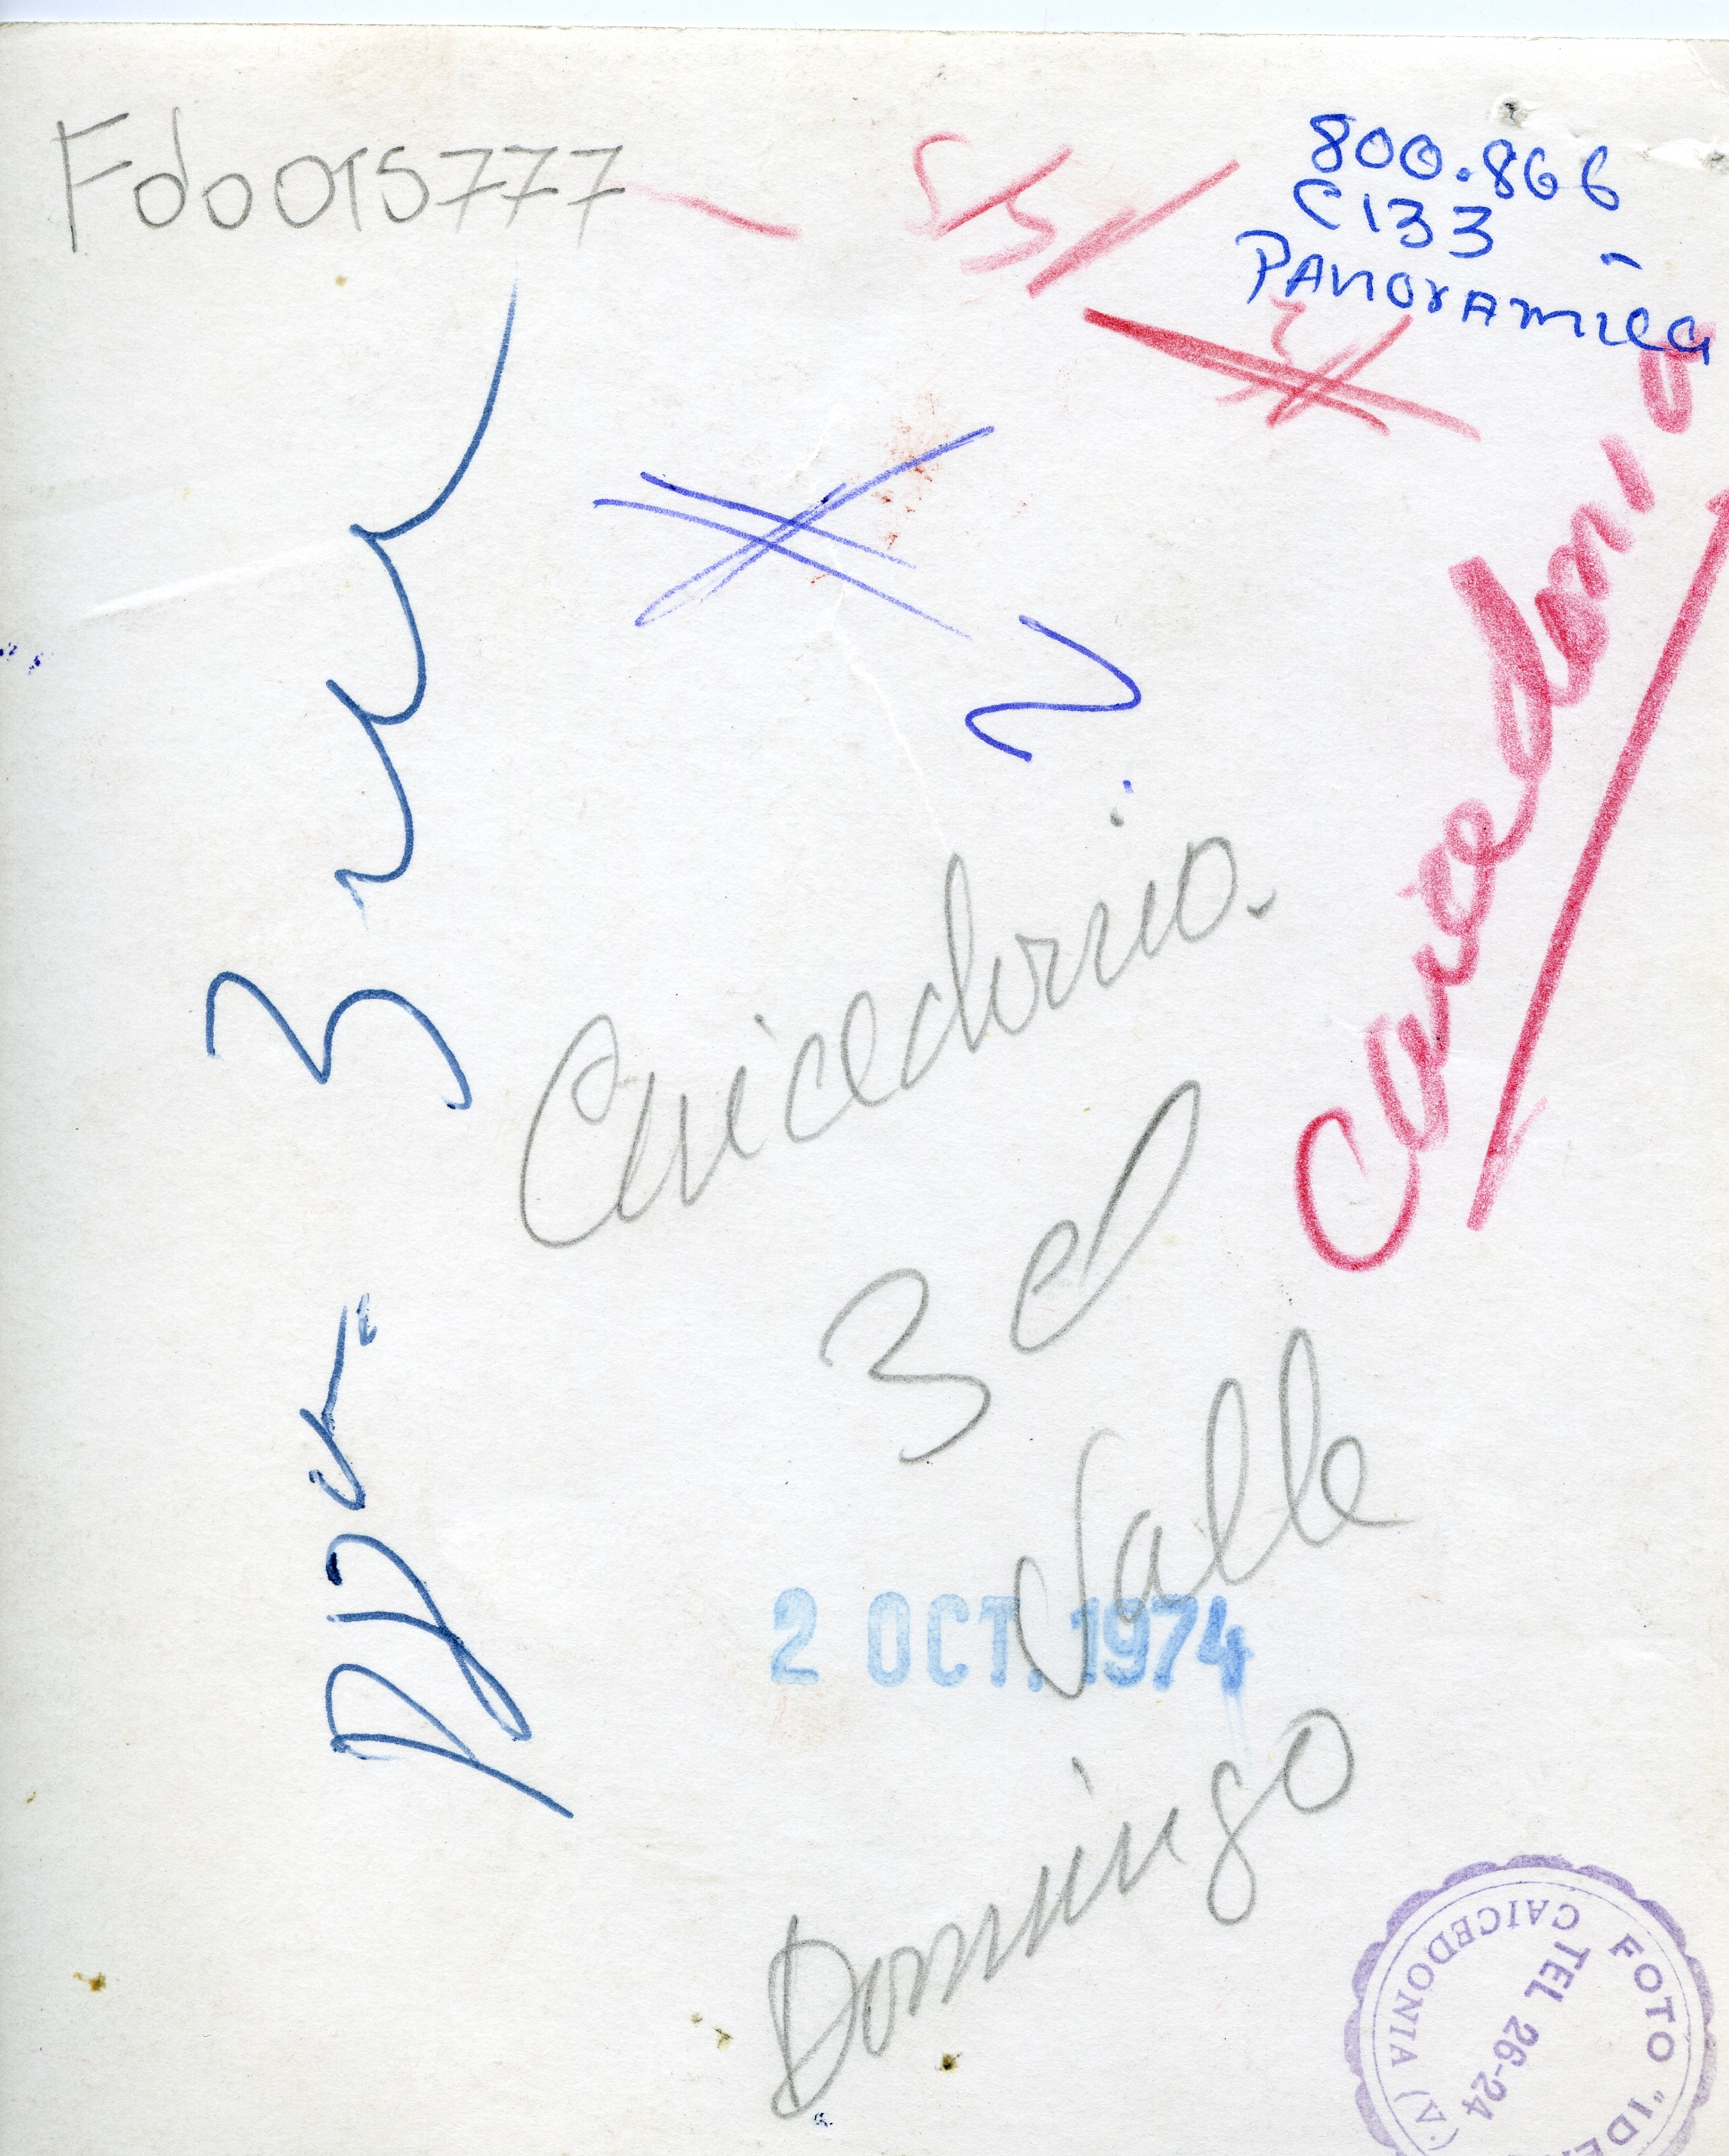 Fdo015777
55
800.866
C133
PANORAMICA
Caicedonia
Caicedonia.
3 cl
Valle
2 OCT. 1974
Domingo
FOTO "IDE
CAICEDONIA (V.
TEL 26-24